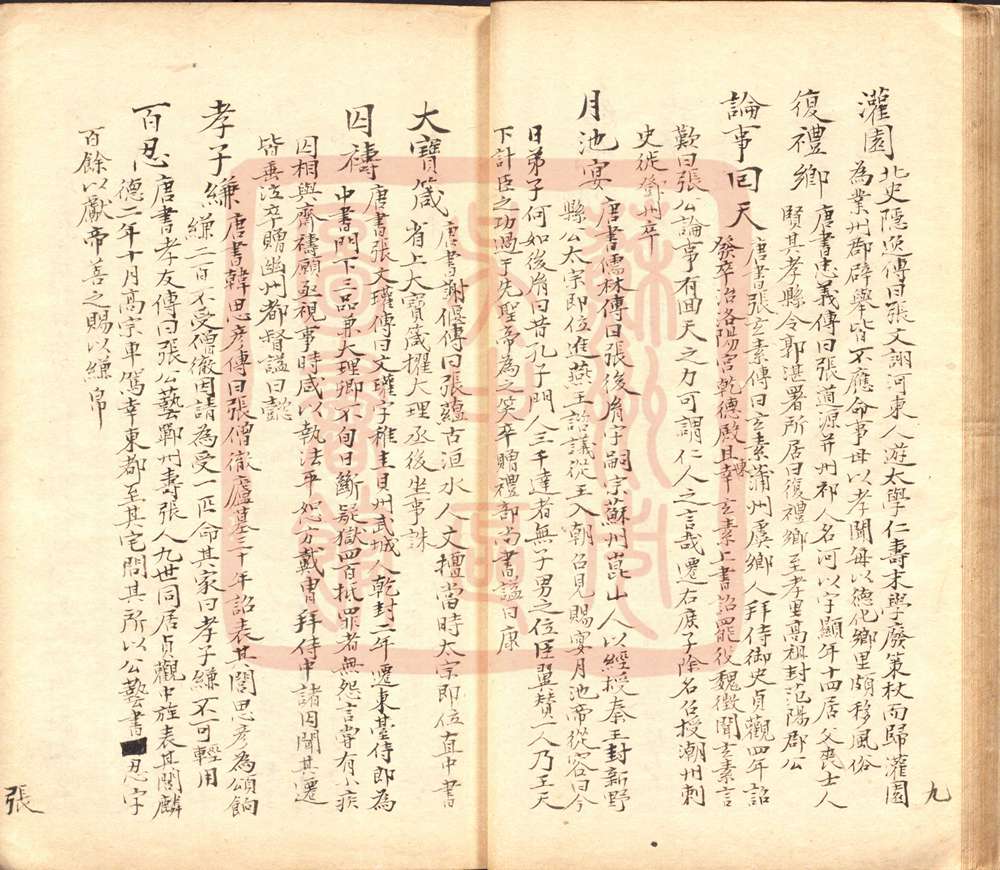 九
灌園北史隱逸傳曰張文詡河東人遊太學仁壽末學廢策杖而歸灌園
為業州郡辟舉皆不應命事母以孝聞每以德化鄉里頗移風俗
復禮鄉唐書忠義傳曰張道源并州祁人名河以字顯年十四居父喪士人
賢其孝縣令郭湛署所居曰復禮鄉至孝里高祖封范陽郡公
論事回天唐書張玄素傳曰玄素蒲州虞鄉人拜侍御史貞觀四年詔
發卒治洛陽宮乾德殿且東幸玄素上書詔罷役魏徵聞玄素言
歎曰張公論事有回天之力可謂仁人之言哉遷右庶子除名召授潮州刺
史徙鄧州卒
月池宴唐書儒林傳曰張後胤字嗣宗蘇州崑山人以經授秦王封新野
縣公太宗即位進燕王諮議從王入朝召見賜宴月池帝從容曰今
日弟子何如後胤曰昔孔子門人三千達者無子男之位臣翼贊一人乃王天
下計臣之功過于先聖帝為之笑卒贈禮部尚書謚曰康
大寶箴唐書謝偃傳曰張蘊古洹水人文擅當時太宗即位直中書
省上大寶箴擢大理丞後坐事誅
囚禱唐書張文瓘傳曰文瓘字稚圭貝州武城人乾封二年遷東臺侍郎為
中書門下三品兼大理卿不旬日斷疑獄四百抵罪者無怨言嘗有小疾
囚相與齋禱願亟視事時咸以執法平恕方戴冑拜侍中諸囚聞其遷
皆垂泣卒贈幽州都督謚曰懿
孝子縑唐書韓思彥傳曰張僧徹廬墓三十年詔表其閭思彥為頌餉
縑二百不受僧徹固請為受一匹命其家曰孝子縑不可輕用
百忍唐書孝友傳曰張公藝鄆州壽張人九世同居貞觀中旌表其門麟
德二年十月高宗車駕幸東都至其宅問其所以公藝書忍字
百餘以獻帝善之賜以縑帛
張